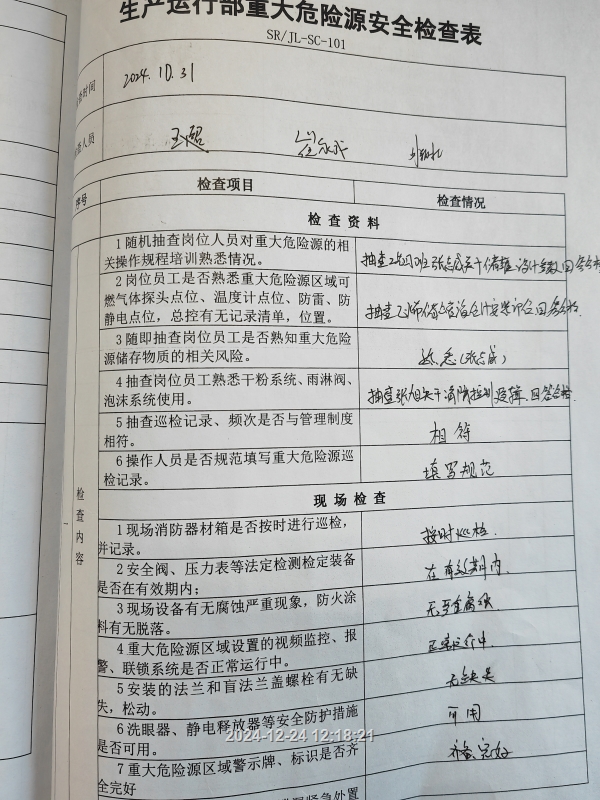 生产运行部重大危险源安全检查表
SR/JL-SC-101
时间
2024.10.31
人员
王超
序号
检查项目
检查情况
检查资料
检查内容
1随机抽查岗位人员对重大危险源的相
关操作规程培训熟悉情况。
抽查
2岗位员工是否熟悉重大危险源区域可
燃气体探头点位、温度计点位、防雷、防
静电点位，总控有无记录清单，位置。
抽查
3随即抽查岗位员工是否熟知重大危险
源储存物质的相关风险。
熟悉
4抽查岗位员工熟悉干粉系统、雨淋阀、
泡沫系统使用。
抽查张旭关于消防
回答合格
5抽查巡检记录、频次是否与管理制度
相符。
相符
6操作人员是否规范填写重大危险源巡
检记录。
填写规范
现场检查
1现场消防器材箱是否按时进行巡检，
并记录。
按时巡检.
2安全阀、压力表等法定检测检定装备
是否在有效期内；
在有效期内.
3现场设备有无腐蚀严重现象，防火涂
料有无脱落。
4重大危险源区域设置的视频监控、报
警、联锁系统是否正常运行中。
正常运行中.
5安装的法兰和盲法兰盖螺栓有无缺
失，松动。
无缺失
6洗眼器、静电释放器等安全防护措施
是否可用。
可用
7重大危险源区域警示牌、标识是否齐
全完好
齐备完好
紧急处置
2024-12-24 12:18:21